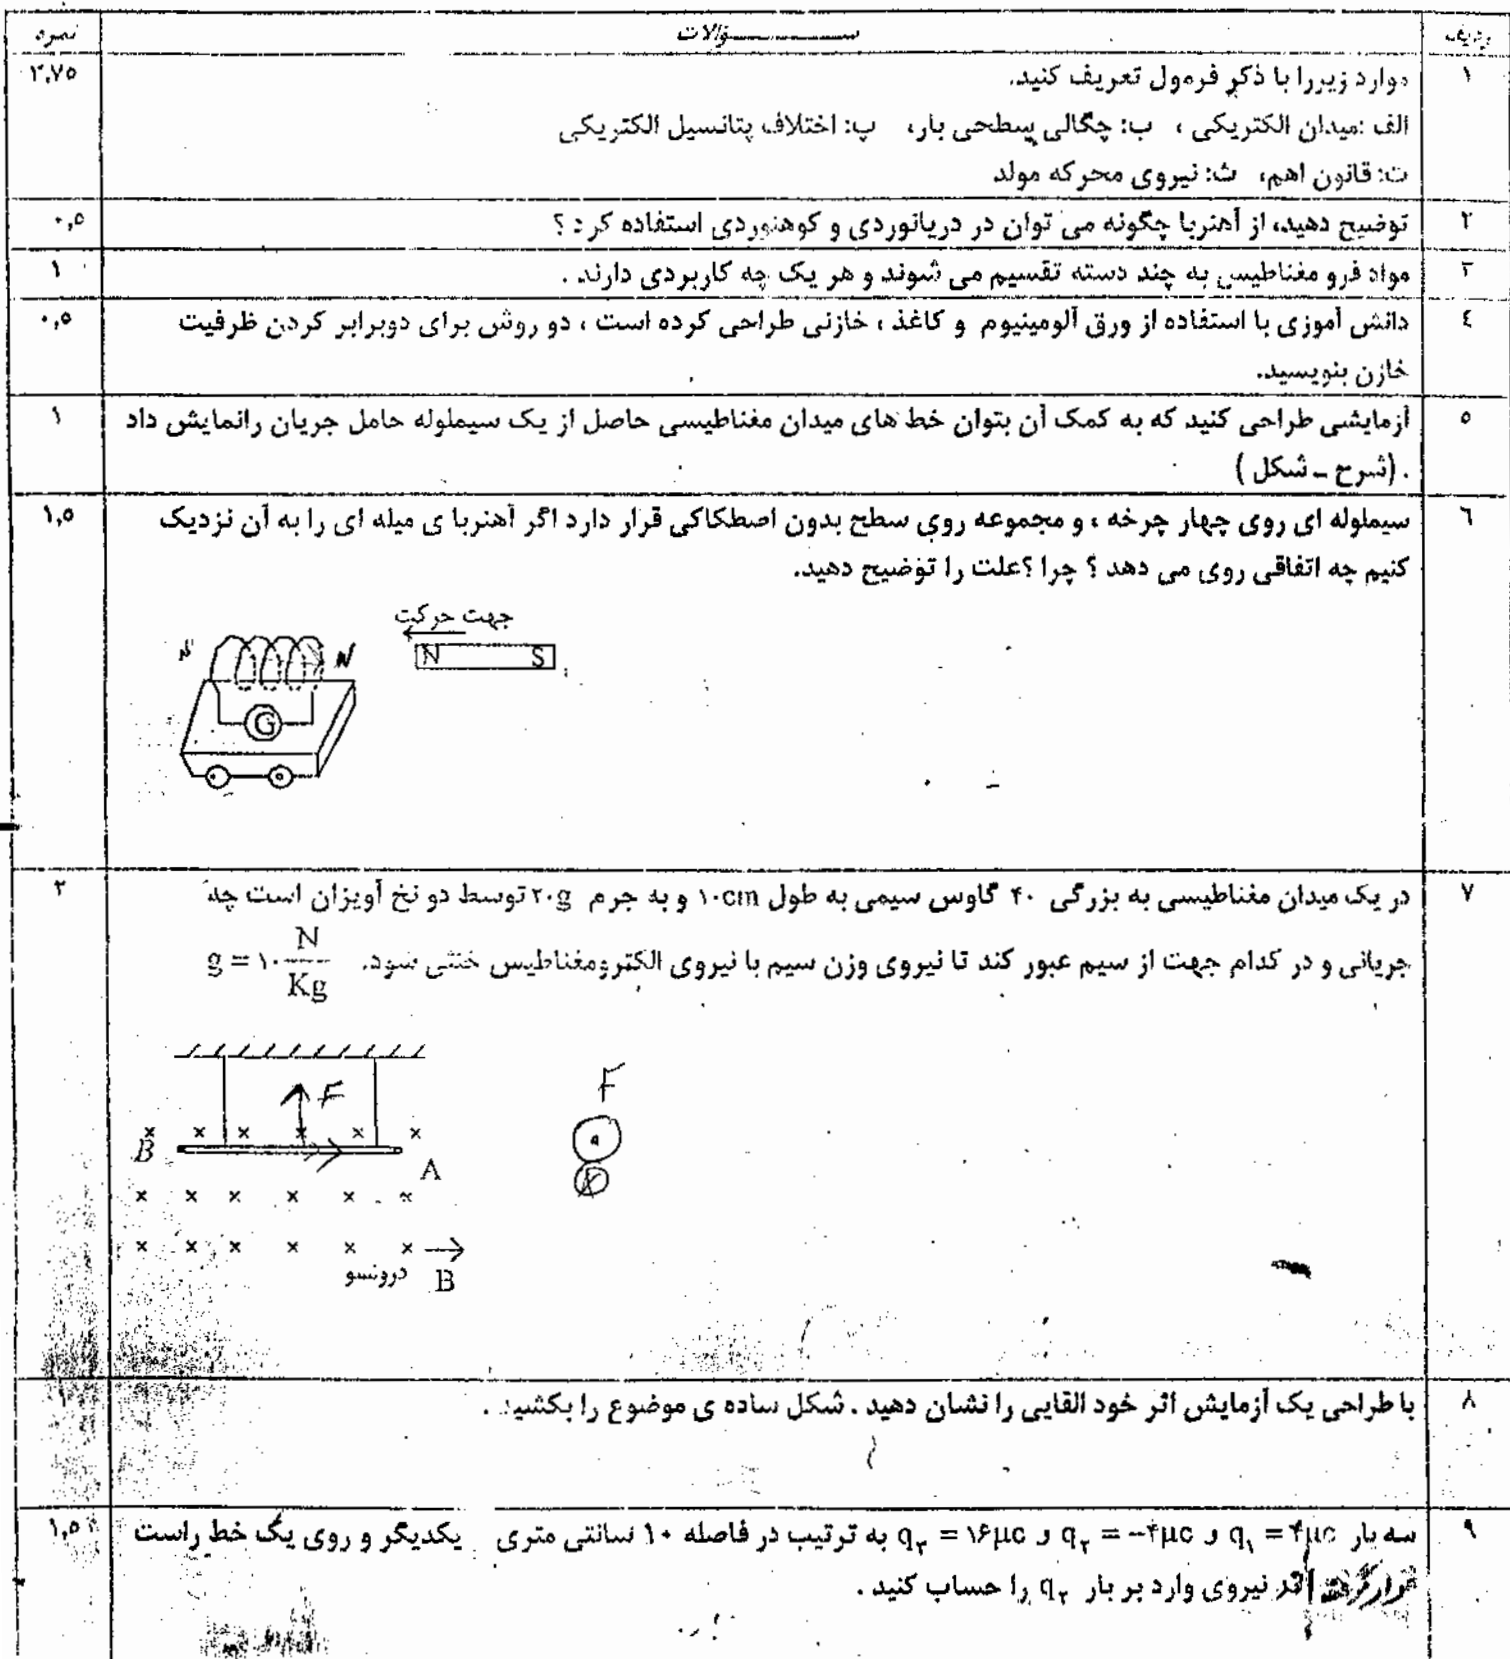 ردیف ســــؤالات نمره
۱ موارد زیررا با ذکر فرمول تعریف کنید. ۲,۷۵
الف :میدان الکتریکی ، ب: چگالی سطحی بار، پ: اختلاف پتانسیل الکتریکی
ت: قانون اهم، ث: نیروی محرکه مولد
۲ توضیح دهید، از آهنربا چگونه می توان در دریانوردی و کوهنوردی استفاده کرد ؟ ۰,۵
۳ مواد فرو مغناطیسی به چند دسته تقسیم می شوند و هر یک چه کاربردی دارند . ۱
٤ دانش آموزی با استفاده از ورق آلومینیوم و کاغذ ، خازنی طراحی کرده است ، دو روش برای دوبرابر کردن ظرفیت ۰,۵
خازن بنویسید.
۵ آزمایشی طراحی کنید که به کمک آن بتوان خط های میدان مغناطیسی حاصل از یک سیملوله حامل جریان رانمایش داد ۱
. (شرح ـ شکل )
٦ سیملوله ای روی چهار چرخه ، و مجموعه روی سطح بدون اصطکاکی قرار دارد اگر آهنربا ی میله ای را به آن نزدیک ۱,۵
کنیم چه اتفاقی روی می دهد ؟ چرا ؟علت را توضیح دهید.
جهت حرکت
N N S
G
۷ در یک میدان مغناطیسی به بزرگی ۴۰ گاوس سیمی به طول ۱۰cm و به جرم ۲۰g توسط دو نخ آویزان است چه ۲
جریانی و در کدام جهت از سیم عبور کند تا نیروی وزن سیم با نیروی الکترومغناطیس خنثی شود. g = ۱۰ N/Kg
F F
B A
درونسو B
۸ با طراحی یک آزمایش اثر خود القایی را نشان دهید . شکل ساده ی موضوع را بکشید .
۹ سه بار q₁ = ۴μc و q₂ = −۴μc و q₃ = ۱۶μc به ترتیب در فاصله ۱۰ سانتی متری یکدیگر و روی یک خط راست ۱,۵
نیروی وارد بر بار q₂ را حساب کنید .